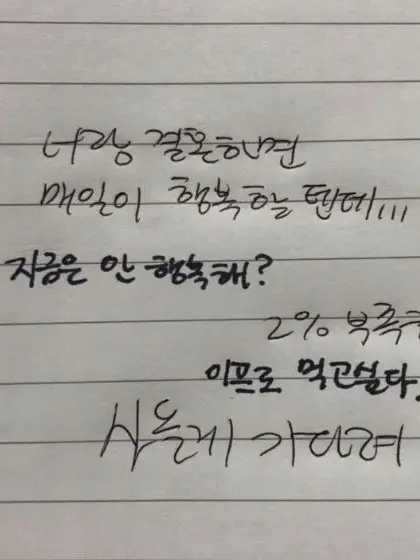 너랑 결혼하면
매일이 행복할 텐데...
지금은 안 행복해?
2% 부족해
이프로 먹고싶다.
사올게 기다려